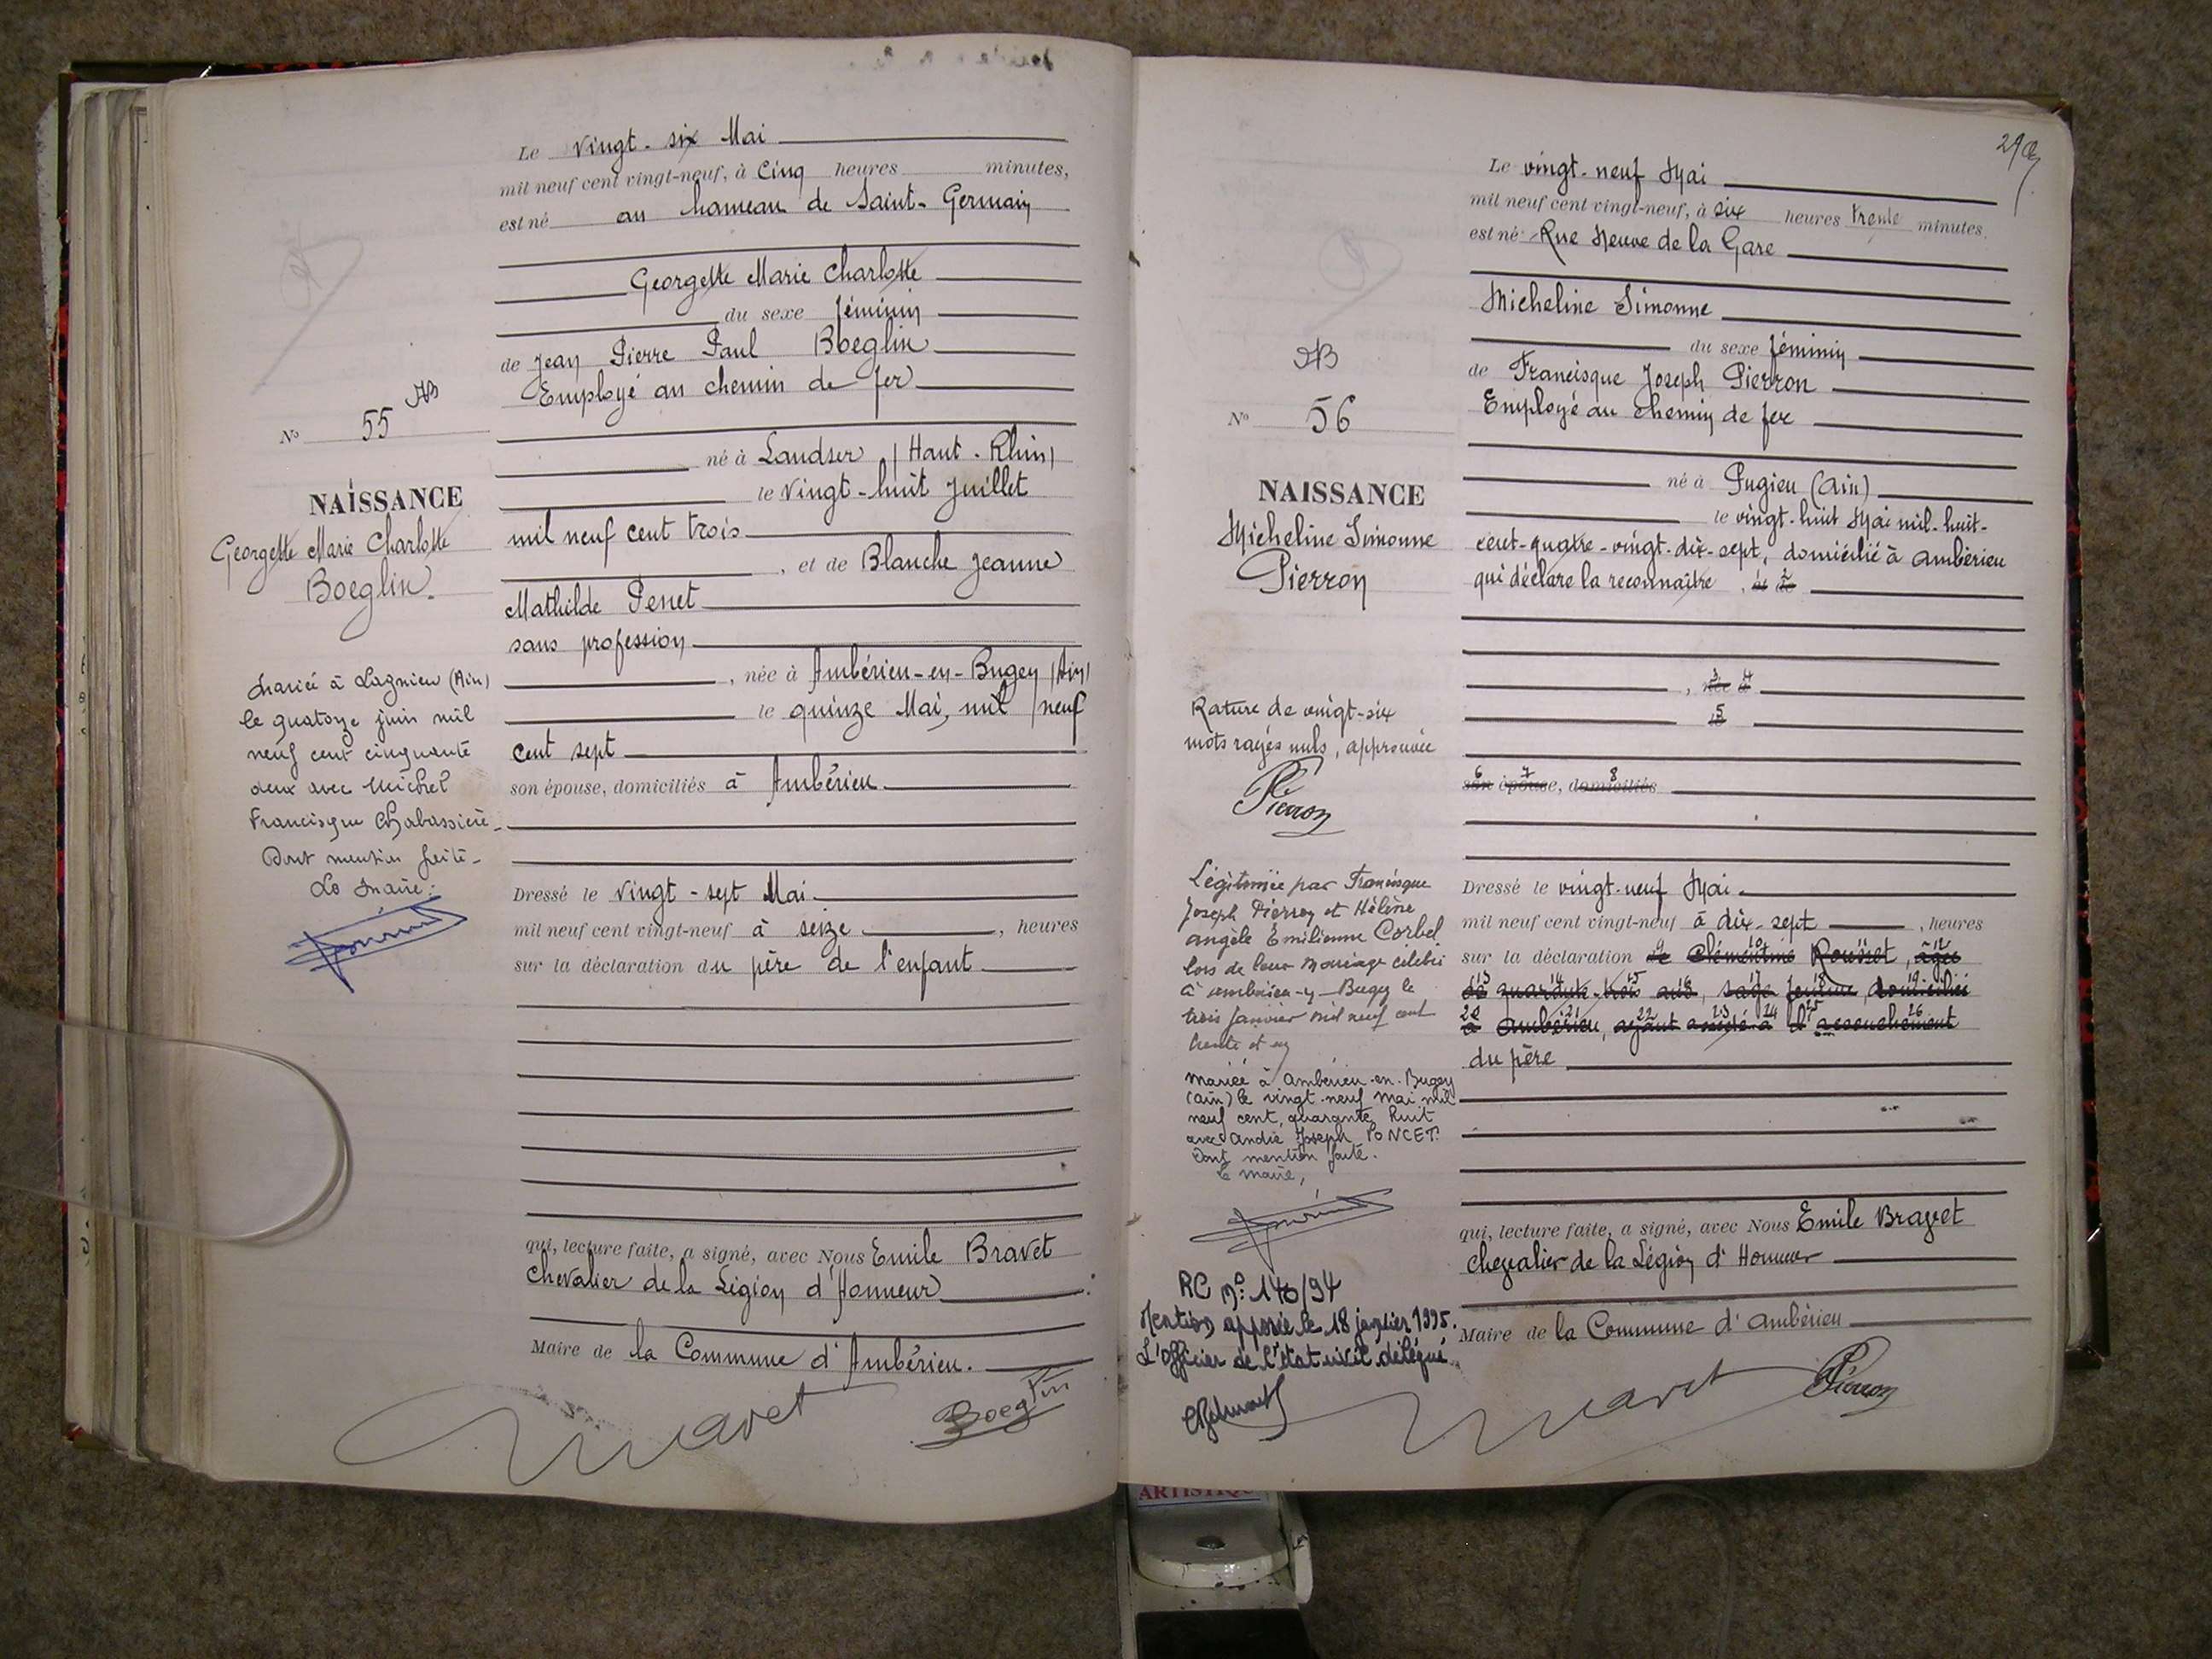 Le vingt-six Mai
mil neuf cent vingt-neuf, à Cinq heures minutes,
est né au hameau de Saint-Germain
Georgette Marie Charlotte
du sexe féminin
de Jean Pierre Paul Boeglin
Employé au chemin de fer
né à Landser (Haut-Rhin)
le Vingt-huit Juillet
mil neuf cent trois
, et de Blanche Jeanne
Mathilde Penet
sans profession
, née à Ambérieu-en-Bugey (Ain)
le quinze Mai, mil neuf
cent sept
son épouse, domiciliés à Ambérieu
Dressé le vingt-sept Mai
mil neuf cent vingt-neuf à seize , heures
sur la déclaration du père de l'enfant
qui, lecture faite, a signé, avec Nous Emile Bravet
chevalier de la Légion d'Honneur
Maire de la Commune d'Ambérieu.
Bravet Boeglin
AB
No 55
NAISSANCE
Georgette Marie Charlotte
Boeglin.
Mariée à Lagnieu (Ain)
le quatorze juin mil
neuf cent cinquante
deux avec Michel
Francisque Chabassière
Dont mention faite-
Le Maire:
29
Le vingt-neuf Mai
mil neuf cent vingt-neuf, à six heures trente minutes.
est né Rue Neuve de la Gare
Micheline Simonne
du sexe féminin
de Francisque Joseph Pierron
Employé au chemin de fer
né à Pugieu (Ain)
le vingt-huit Mai mil-huit-
cent-quatre-vingt-dix-sept, domicilié à Ambérieu
qui déclare la reconnaître , et de
, née à
le
son épouse, domiciliés
Dressé le vingt-neuf Mai
mil neuf cent vingt-neuf à dix-sept , heures
sur la déclaration de Clémentine Rousset, âgée
de quarante-trois ans, sage femme, domiciliée
à Ambérieu, ayant assisté à l'accouchement
du père
qui, lecture faite, a signé, avec Nous Emile Bravet
chevalier de la Légion d'Honneur
Maire de la Commune d'Ambérieu
Bravet Pierron
AB
No 56
NAISSANCE
Micheline Simonne
Pierron
Rature de vingt-six
mots rayés nuls, approuvée
Pierron
Légitimée par Francisque
Joseph Pierron et Hélène
Angèle Emilienne Corbel
lors de leur mariage célébré
à Ambérieu-en-Bugey le
trois janvier mil neuf cent
trente et un
Mariée à Ambérieu-en-Bugey
(Ain) le vingt-neuf mai mil
neuf cent quarante huit
avec André Joseph PONCET.
Dont mention faite.
Le Maire,
RC n° 140/94
Mention apposée le 18 janvier 1995.
L'officier de l'état civil délégué.
ARTISTIQU